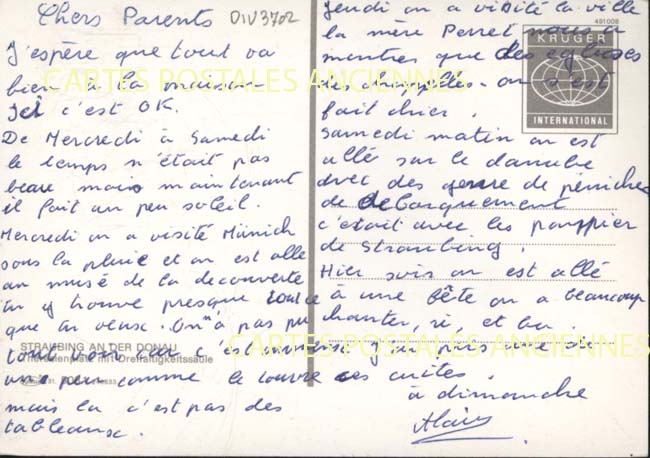 Chers Parents DIV3702
J'espère que tout va
bien à la maison
Ici c'est OK.
De Mercredi à Samedi
le temps n'était pas
beau mais maintenant
il fait un peu soleil.
Mercredi on a visité Münich
sous la pluie et on est allé
au musé de la decouverte
tu y trouve presque tout ce
que tu veux. On n'a pas pu
STRAUBING AN DER DONAU
Theresienplatz mit Dreifaltigkeitssäule
tout voir car c'est immense
une peu comme le louvre
mais la c'est pas des
tableaux.
Jeudi on a visité la ville
la mère Perret nous a
montrer que des eglises
des chapelles. on s'est
fait chier.
Samedi matin on est
allé sur le danube
avec des genre de péniches
de debarquement
c'était avec les pompier
de Straubing.
Hier soir on est allé
à une fête on a beaucoup
chanter, ri et bu
y en a pas
cuites.
à dimanche
Alain
491008
KRÜGER
INTERNATIONAL
CARTES POSTALES ANCIENNES
CARTES POSTALES ANCIENNES